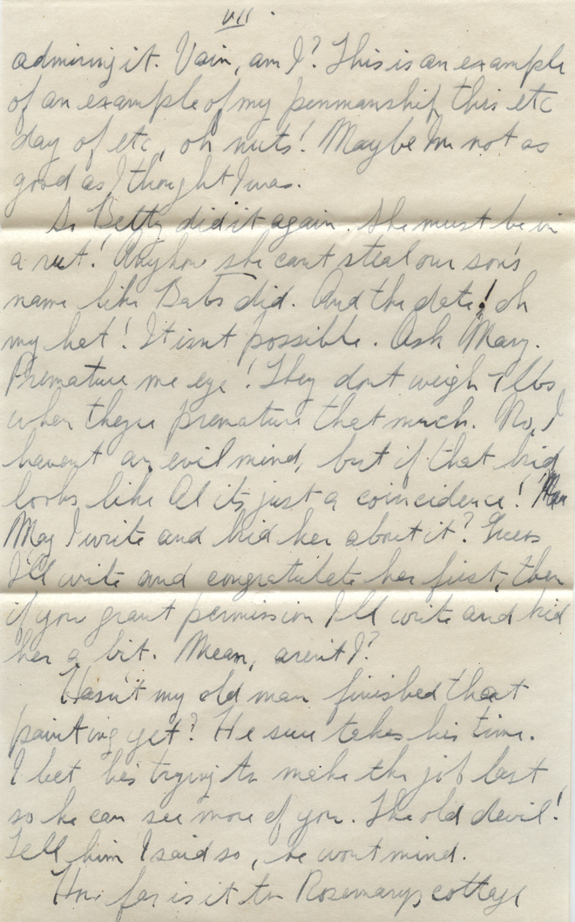 VII.
admiring it. Vain, am I? This is an example
of an example of my penmanship this etc
day of etc, oh nuts! Maybe Im not as
good as I thought I was.
So Betty did it again. She must be in
a rut! Anyhow she cant steal our son's
name like Babs did. And the date! oh
my hat! It isnt possible. Ask Mary.
Premature me eye! They dont weigh 7 lbs
when theyre premature that much. No, I
havent an evil mind, but if that kid
looks like Al its just a coincidence!
May I write and kid her about it? Guess
I'll write and congratulate her first, then
if you grant permission I'll write and kid
her a bit. Mean, aren't I?
Hasn't my old man finished that
painting yet? He sure takes his time.
I bet hes trying to make the job last
so he can see more of you. The old devil!
Tell him I said so, he wont mind.
How far is it to Rosemarys cottage